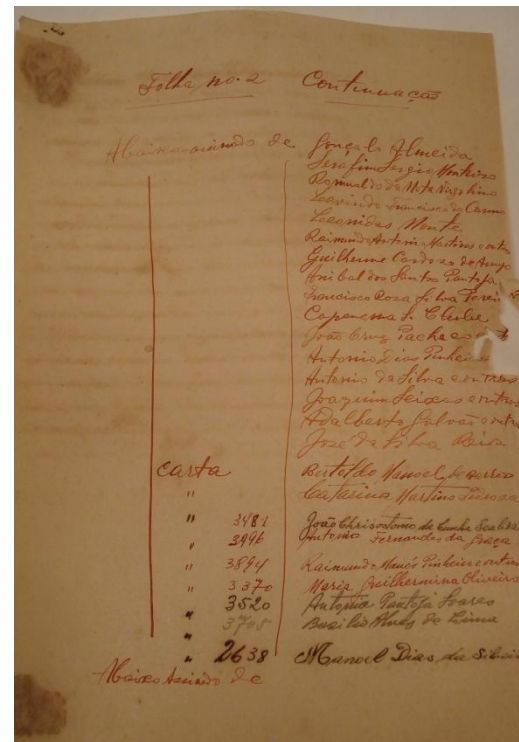 Folha, no. 2 Continuação
Abaixo-assinado de Gonçalo Almeida
Serafim Sergio Monteiro
Romualdo da Mota
Francisco do Carmo
Leonidas Monte
Raimundo Antonio Martins e outros
Guilherme Cardoso de Araujo
Anibal dos Santos Pantoja
Francisco Rosa Silva
Capanema S. Clube
João Cruz Pacheco
Antonio Dias Pinheiro
Antonio da Silva e outros
Joaquim Seixas e outros
Adalberto Galvão e outr
José da Silva
carta Bertoldo Manoel
" Catarina Martins
" 3481 João Chrisostomo da Cunha
" 3996 Antonio Fernandes da Graça
" 3894 Raimundo Pinheiro e outros
" 3370 Maria Guilhermina Oliveira
" 3520 Antonia Pantoja Soares
" 3705 Basilio Alves de Lima
" 2638 Manoel Dias da
Abaixo Assinado de